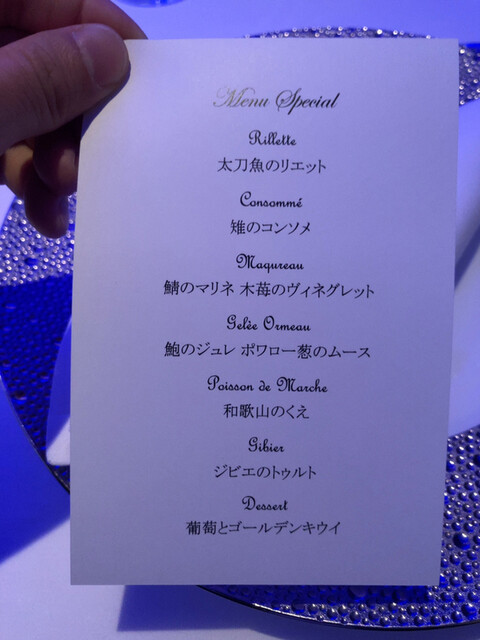 Menu Special
Rillette
太刀魚のリエット
Consommé
雉のコンソメ
Maqureau
鯖のマリネ 木苺のヴィネグレット
Gelèe Ormeau
鮑のジュレ ポワロー葱のムース
Poisson de Marche
和歌山のくえ
Gibier
ジビエのトゥルト
Dessert
葡萄とゴールデンキウイ